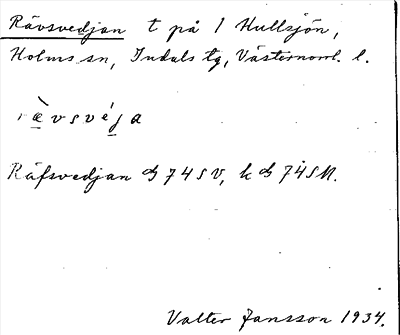 Rävsvedjan t på 1 Hullsjön,
Holms sn, Indals tg, Västernorrl. l.
rævsvéja
Räfsvedjan 74 SV, k 74 SV.
Valter Jansson 1934.